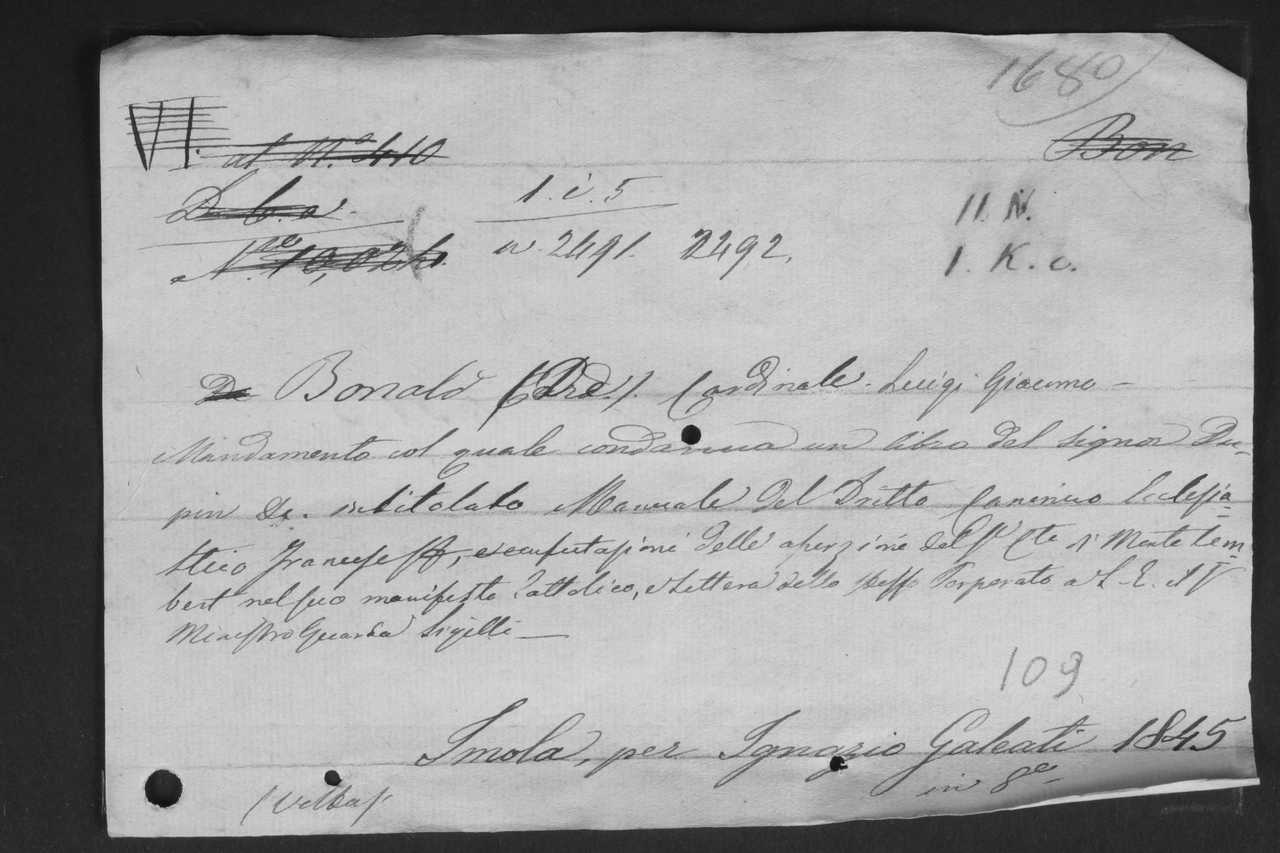 1680
VI. al N.o 410
Bon
De C. a
1. i. 5
11. N.
N.ro 10,024.
a. 2491. 2492.
1. K. c.
De Bonald Cardinale Luigi Giacomo —
Mandamento col quale condanna un libro del signor Du-
pin intitolato Manuale del Dritto Canonico Ecclesia-
stico Francese delle Cte di Montalem-
bert nel suo manifesto Cattolico, e Lettera dello stesso Porporato a S. E. il
Ministro Guarda Sigilli —
109
Imola, per Ignazio Galeati 1845
in 8o